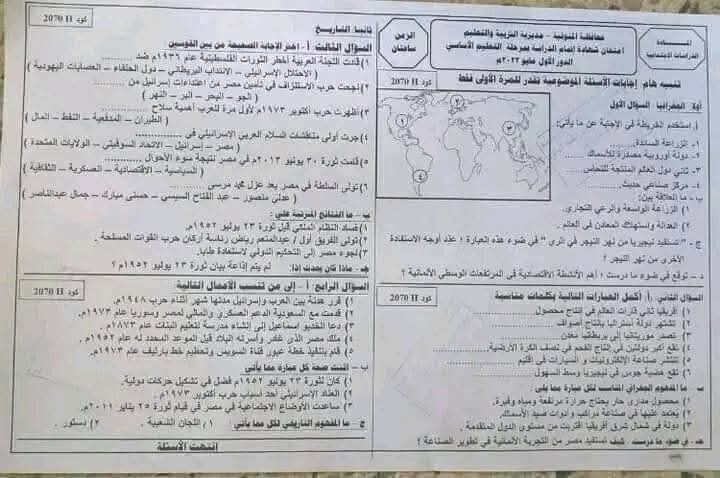 المـــــادة
الدراسات الاجتماعية
محافظة المنوفية - مديرية التربية والتعليم
امتحان شهادة إتمام الدراسة بمرحلة التعليم الأساسي
الدور الأول مايو ٢٠٢٣م
الزمن
ساعتان
تنبيه هام: إجابات الأسئلة الموضوعية تقدر للمرة الأولى فقط
كود 2070 H
أولا: الجغرافيا: السؤال الأول
أ) استخدم الخريطة في الإجابة عن ما يأتي:
١. الزراعة السائدة.
٢. دولة أوروبية مصدرة للأسماك.
٣. ثاني دول العالم المنتجة للنحاس.
٤. مركز صناعي حديث.
ب - ما العلاقة بين:
١. الزراعة الواسعة والرعي التجاري.
٢. العدالة واستهلاك المعادن في العالم.
ج - " تستفيد نيجيريا من نهر النيجر في الري " في ضوء هذه العبارة ؛ عدد أوجه الاستفادة
الأخرى من نهر النيجر ؟
د - توقع في ضوء ما درست ؛ أهم الأنشطة الاقتصادية في المرتفعات الوسطي الألمانية ؟
السؤال الثاني: أ) أكمل العبارات التالية بكلمات مناسبة
كود 2070 H
١. أفريقيا ثاني قارات العالم في إنتاج محصول
٢. تشتهر دولة أستراليا بإنتاج أصواف
٣. تصدر موريتانيا إلى بريطانيا معدن
٤. تقع أكبر دولتين في إنتاج الفحم في نصف الكرة الأرضية.
٥. تنتشر صناعة الإلكترونيات و السيارات في إقليم
٦. تقع هضبة جوس في نيجيريا وسط السهول
ب - ما المفهوم الجغرافي المناسب لكل عبارة مما يلي
١. محصول مداري حار يحتاج حرارة مرتفعة ومياه وفيرة.
٢. يعتمد عليها في صناعة مراكب وأدوات صيد الأسماك.
٣. دولة في شمال شرق أفريقيا اقتربت من مستوى الدول المتقدمة.
جـ - في ضوء ما درست كيف تستفيد مصر من التجربة الألمانية في تطوير الصناعة ؟
كود 2070 H
ثانيا: التاريخ
السؤال الثالث: أ - اختر الإجابة الصحيحة من بين القوسين
١) قامت اللجنة العربية أخطر الثورات الفلسطينية عام ١٩٣٦م ضد
(الاحتلال الإسرائيلي – الانتداب البريطاني – دول الحلفاء – العصابات اليهودية)
٢) نجحت حرب الاستنزاف في تأمين مصر من اعتداءات إسرائيل من
( الجو – البحر – البر – النهر )
٣) أظهرت حرب أكتوبر ١٩٧٣م لأول مرة للعرب أهمية سلاح
( الطيران – المدفعية – النفط – المال )
٤) جرت أولى مناقشات السلام العربي الإسرائيلي في
( مصر – إسرائيل – الاتحاد السوفيتي – الولايات المتحدة )
٥) قامت ثورة ٣٠ يونيو ٢٠١٣م في مصر نتيجة سوء الأحوال
( السياسية – الاقتصادية – العسكرية – الثقافية )
٦) تولى السلطة في مصر بعد عزل محمد مرسي
( عدلي منصور – عبد الفتاح السيسي – حسني مبارك – جمال عبدالناصر )
ب - ما النتائج المترتبة على:
١) فساد النظام الملكي قبل ثورة ٢٣ يوليو ١٩٥٢م
٢) تولى الفريق أول / عبدالمنعم رياض رئاسة أركان حرب القوات المسلحة.
٣) لجوء مصر إلى التحكيم الدولي لاستعادة طابا.
جـ - ماذا كان يحدث إذا: لم يتم إذاعة بيان ثورة ٢٣ يوليو ١٩٥٢م ؟
السؤال الرابع: أ - إلى من تنسب الأعمال التالية:
كود 2070 H
١) قرر هدنة بين العرب وإسرائيل مدتها شهر أثناء حرب ١٩٤٨م.
٢) قدمت مع السعودية الدعم العسكري والمالي لمصر وسوريا عام ١٩٧٣م.
٣) دعا الخديو إسماعيل إلى إنشاء مدرسة لتعليم البنات عام ١٨٧٣م.
٤) ملك مصر الذى غادر وأسرته البلاد قبل الموعد المحدد له عام ١٩٥٢م.
٥) قام بتنفيذ خطة عبور قناة السويس وتحطيم خط بارليف عام ١٩٧٣م.
ب - أثبت صحة كل عبارة مما يأتي
١) كان لثورة ٢٣ يوليو ١٩٥٢م فضل في تشكيل حركات دولية.
٢) العناد الإسرائيلي أحد أسباب حرب أكتوبر ١٩٧٣م.
٣) ساعدت الأوضاع الاجتماعية في مصر في قيام ثورة ٢٥ يناير ٢٠١١م.
ج - ما المفهوم التاريخي لكل مما يأتي: ١) اللجان الشعبية. ٢) دستور.
انتهت الأسئلة